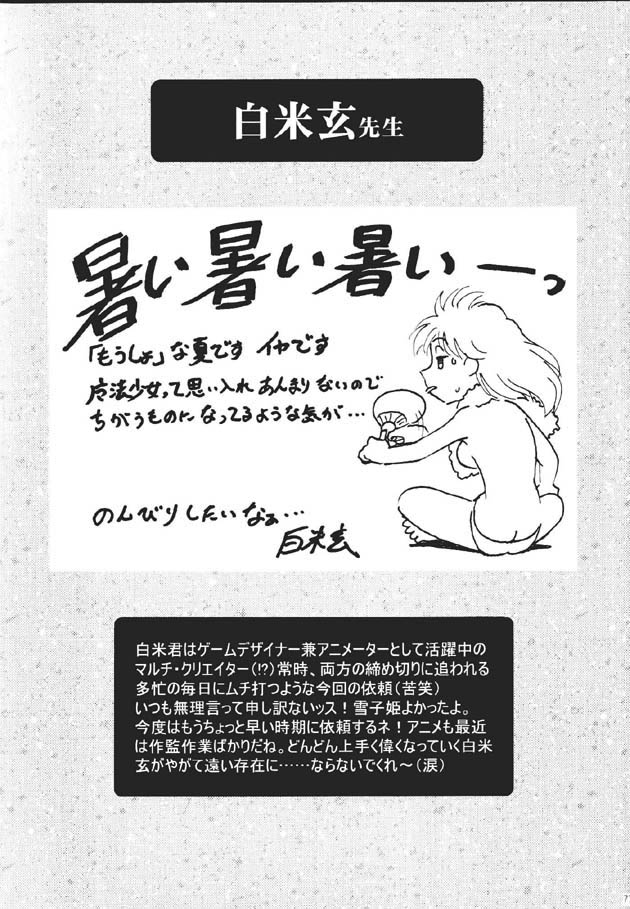 白米玄先生
暑い暑い暑いーっ
「もうしょ」な夏です イヤです
魔法少女って思い入れあんまりないので
ちがうものになってるような気が…
のんびりしたいなぁ…
白米玄
白米君はゲームデザイナー兼アニメーターとして活躍中の
マルチ・クリエイター(!?)常時、両方の締め切りに追われる
多忙の毎日にムチ打つような今回の依頼(苦笑)
いつも無理言って申し訳ないッス！雪子姫よかったよ。
今度はもうちょっと早い時期に依頼するネ！アニメも最近
は作監作業ばかりだね。どんどん上手く偉くなっていく白米
玄がやがて遠い存在に……ならないでくれ～(涙)